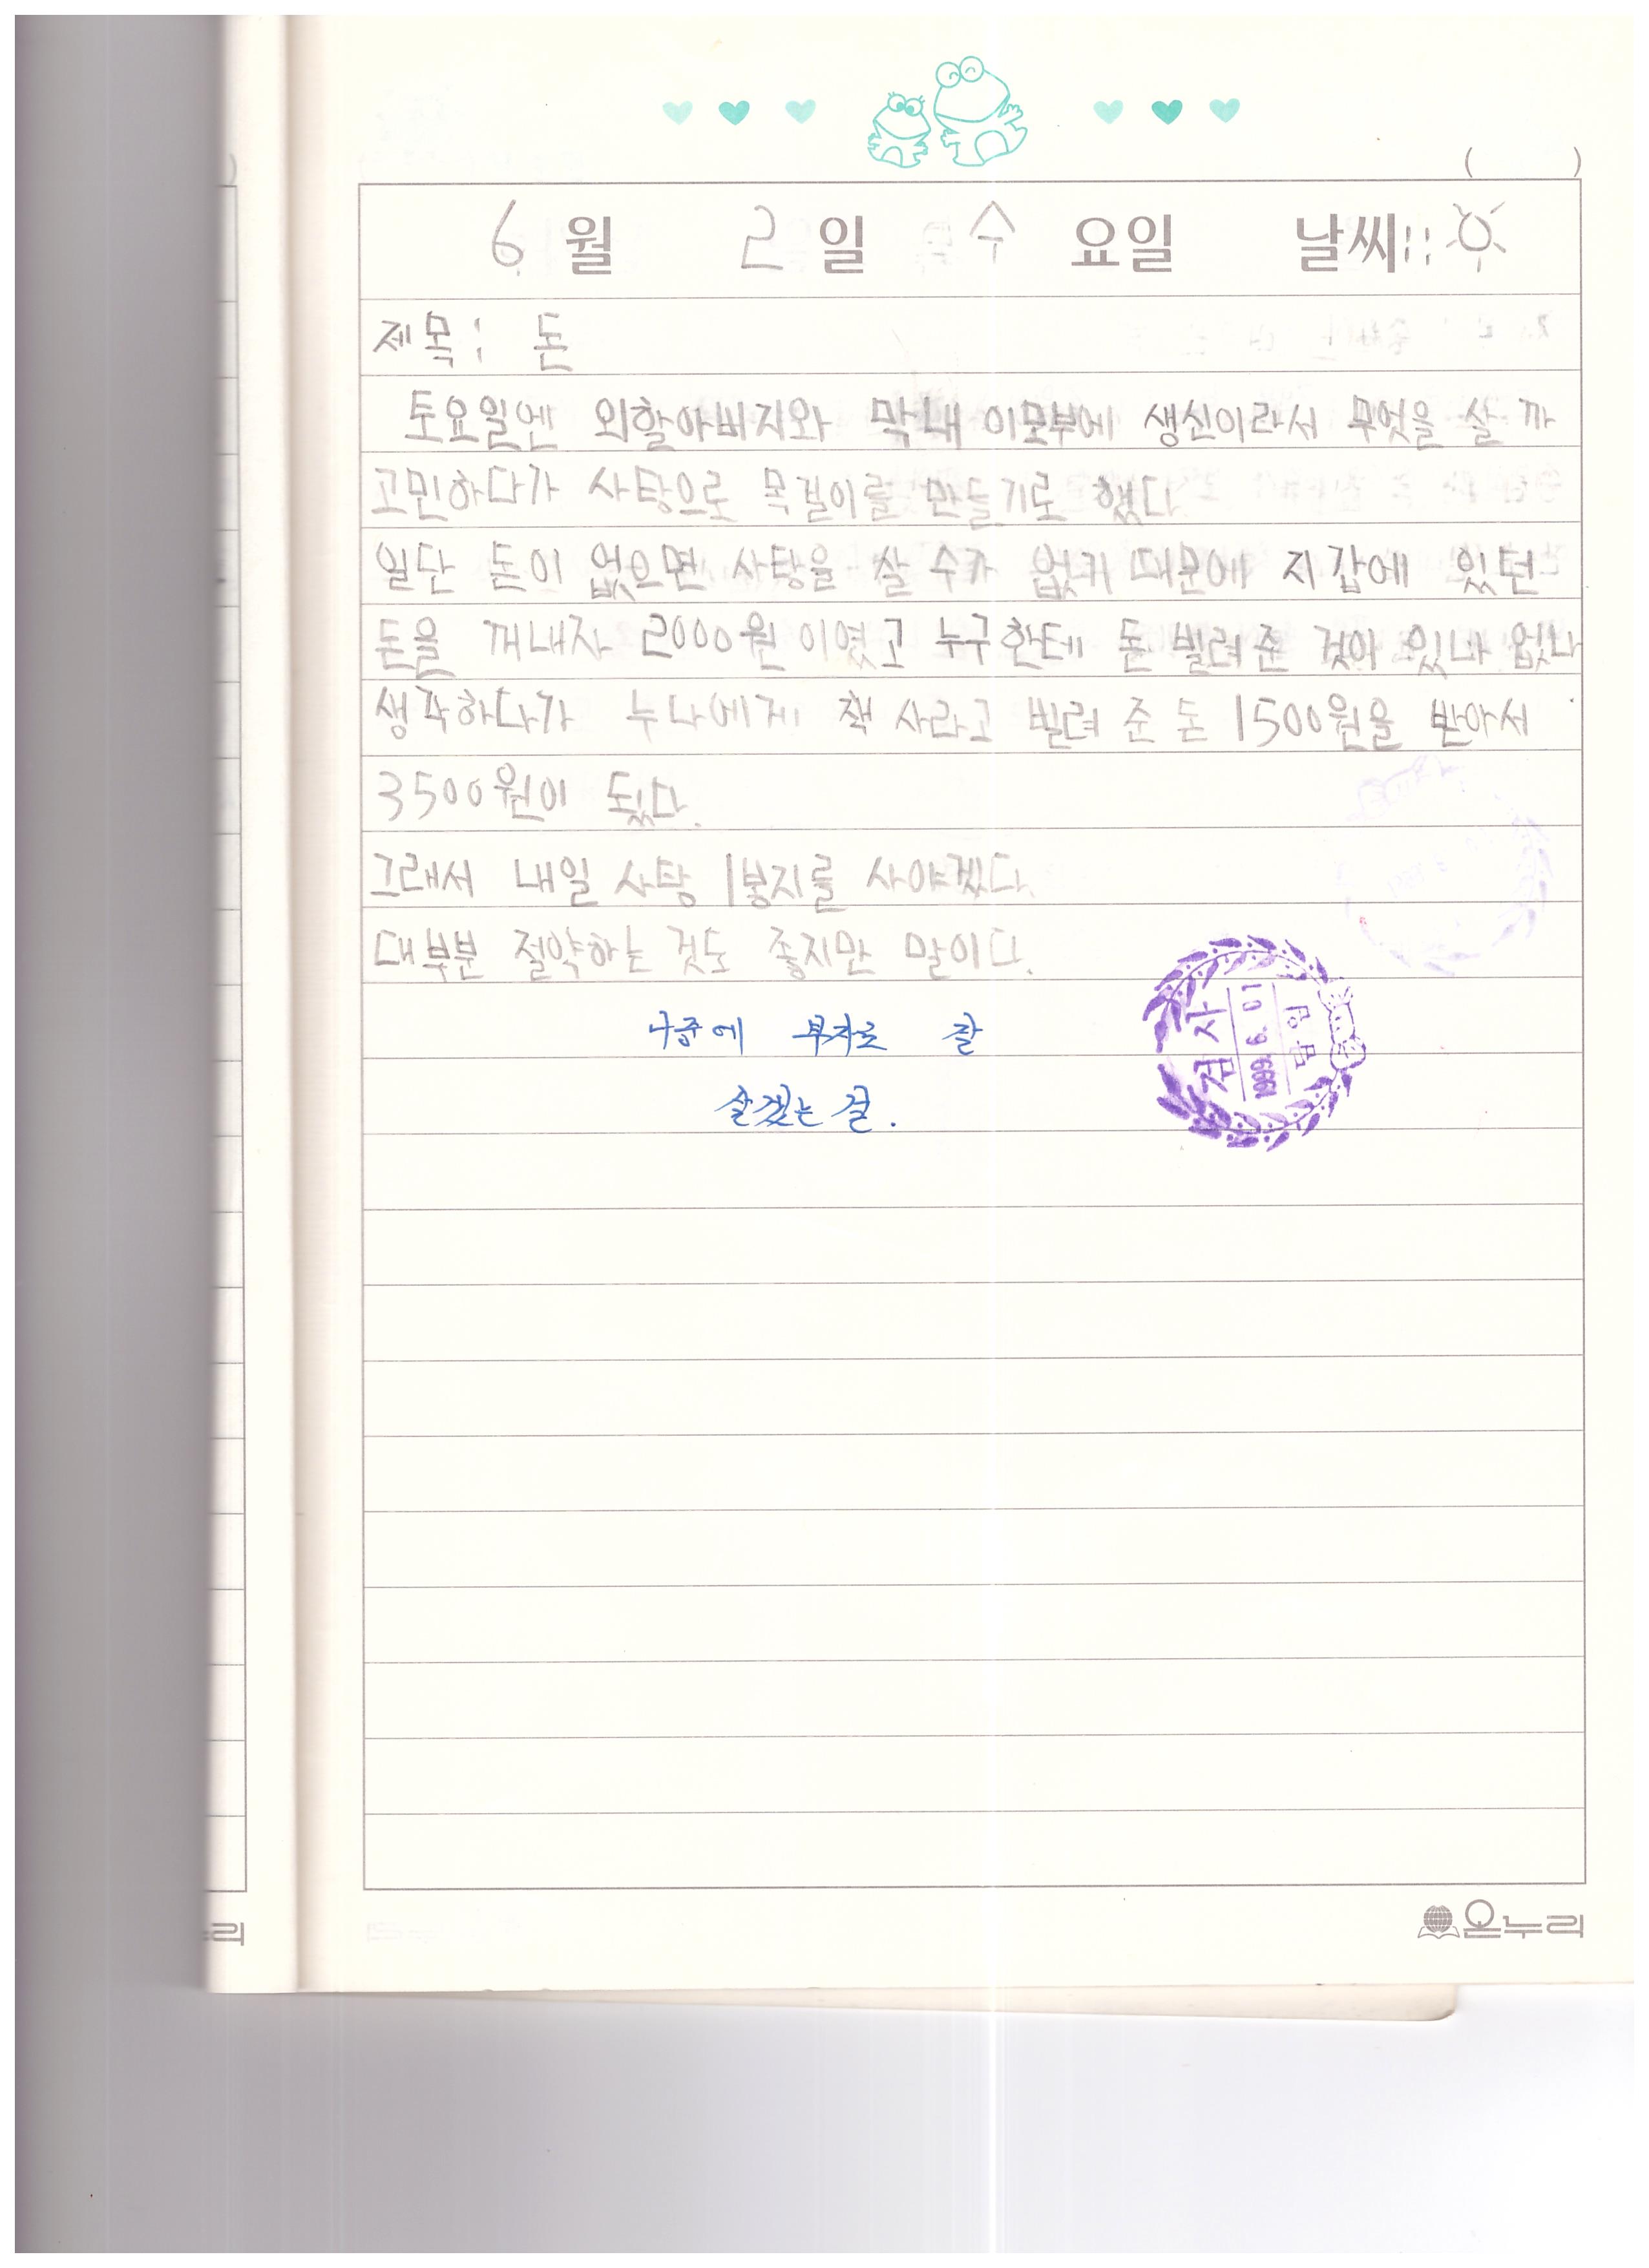 6월 2일 수요일 날씨::
제목: 돈
토요일엔 외할아버지와 막내 이모부에 생신이라서 무엇을 살 까
고민하다가 사탕으로 목걸이를 만들기로 했다
일단 돈이 없으면 사탕을 살 수가 없기 때문에 지갑에 있던
돈을 꺼내자 2000원 이였고 누구한테 돈 빌려 준 것이 있나 없나
생각하다가 누나에게 책 사라고 빌려 준 돈 1500원을 받아서
3500원이 됬다.
그래서 내일 사탕 1봉지를 사야겠다.
대부분 절약하는 것도 좋지만 말이다.
나중에 부자로 잘
살겠는 걸.
검사
1999. 6. 01
온누리
누리